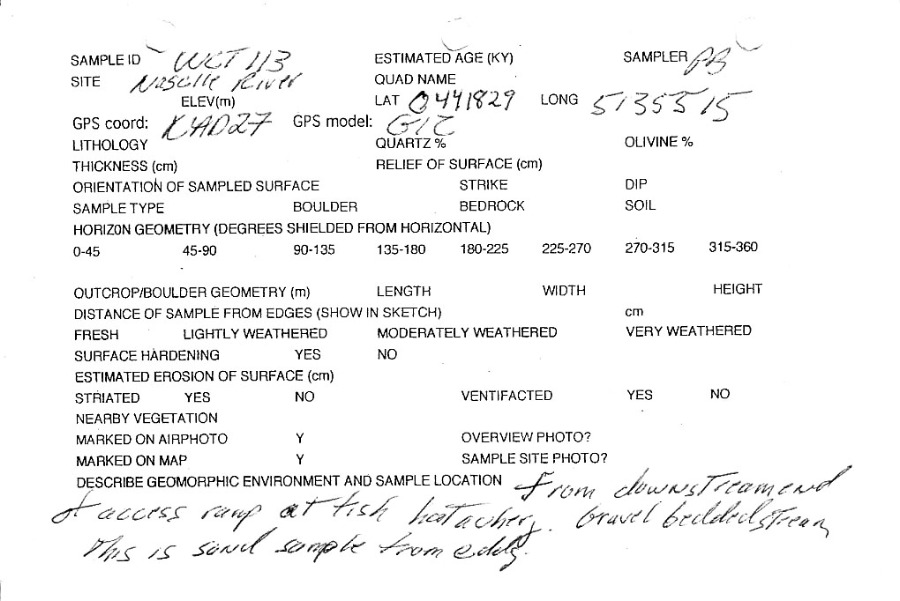 SAMPLE ID WCT 113 ESTIMATED AGE (KY) SAMPLER PB
SITE Naselle River QUAD NAME
ELEV(m) LAT 0441829 LONG 5135515
GPS coord: NAD27 GPS model: G12
LITHOLOGY QUARTZ % OLIVINE %
THICKNESS (cm) RELIEF OF SURFACE (cm)
ORIENTATION OF SAMPLED SURFACE STRIKE DIP
SAMPLE TYPE BOULDER BEDROCK SOIL
HORIZON GEOMETRY (DEGREES SHIELDED FROM HORIZONTAL)
0-45 45-90 90-135 135-180 180-225 225-270 270-315 315-360
OUTCROP/BOULDER GEOMETRY (m) LENGTH WIDTH HEIGHT
DISTANCE OF SAMPLE FROM EDGES (SHOW IN SKETCH) cm
FRESH LIGHTLY WEATHERED MODERATELY WEATHERED VERY WEATHERED
SURFACE HARDENING YES NO
ESTIMATED EROSION OF SURFACE (cm)
STRIATED YES NO VENTIFACTED YES NO
NEARBY VEGETATION
MARKED ON AIRPHOTO Y OVERVIEW PHOTO?
MARKED ON MAP Y SAMPLE SITE PHOTO?
DESCRIBE GEOMORPHIC ENVIRONMENT AND SAMPLE LOCATION From downstream end
of access ramp at fish hatachery. Gravel bedded stream
This is sand sample from eddy.